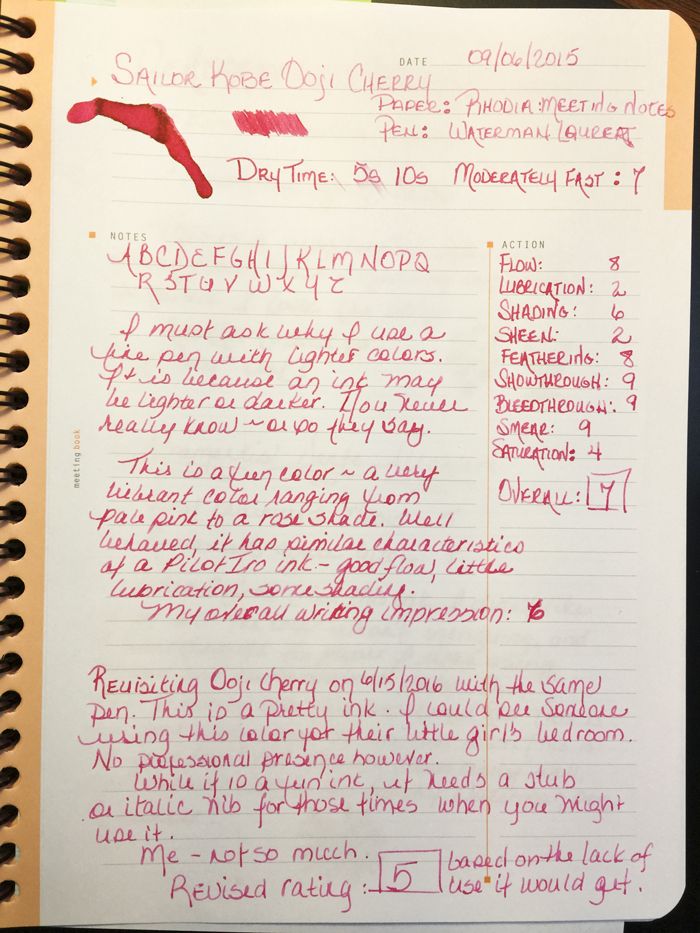 DATE 09/06/2015
SAILOR KOBE OOJI CHERRY
PAPER: RHODIA MEETING NOTES
PEN: WATERMAN LAUREAT
DRY TIME: 5s 10s MODERATELY FAST: 7
NOTES
A B C D E F G H I J K L M N O P Q
R S T U V W X Y Z
I must ask why I use a
fine pen with lighter colors.
It is because an ink may
be lighter or darker. You never
really know ~ or so they say.
This is a fun color ~ a very
vibrant color ranging from
pale pink to a rose shade. Well
behaved, it has similar characteristics
of a Pilot Iro ink - good flow, little
lubrication, some shading.
My overall writing impression: 6
ACTION
FLOW: 8
LUBRICATION: 2
SHADING: 6
SHEEN: 2
FEATHERING: 8
SHOWTHROUGH: 9
BLEEDTHROUGH: 9
SMEAR: 9
SATURATION: 4
OVERALL: 7
meeting book
Revisiting Ooji Cherry on 6/15/2016 with the same
pen. This is a pretty ink. I could see someone
using this color for their little girl's bedroom.
No professional presence however.
While it is a fun ink, it needs a stub
or italic nib for those times when you might
use it.
Me - not so much.
Revised rating: 5
based on the lack of
use it would get.